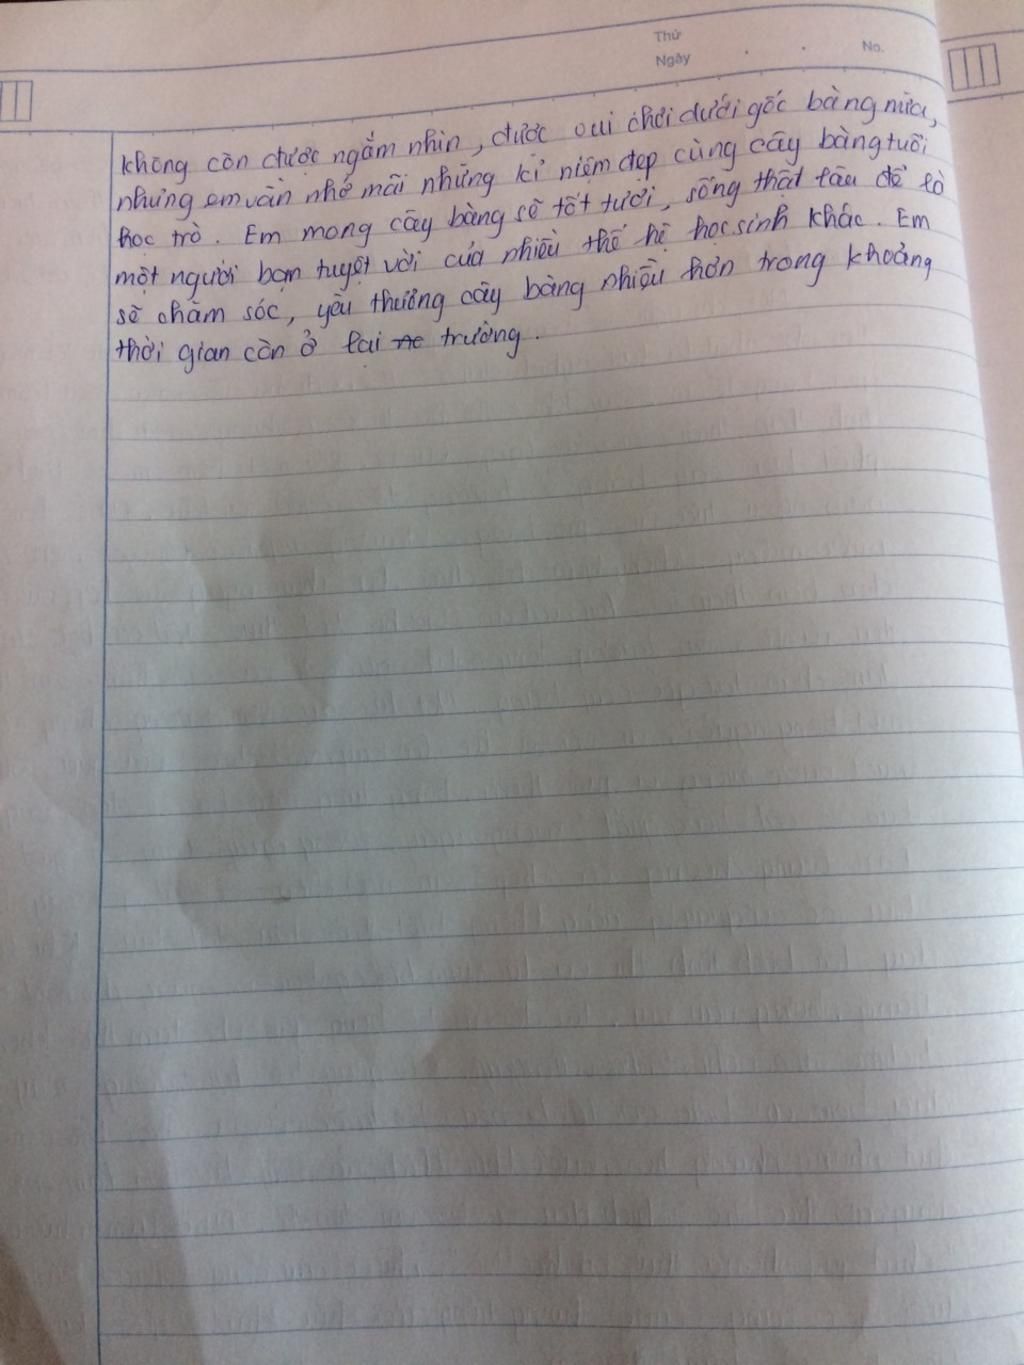 Thứ
Ngày
No.
không còn được ngắm nhìn, được vui chơi dưới gốc bàng nữa,
nhưng em vẫn nhớ mãi những kỉ niệm đẹp cùng cây bàng tuổi
học trò. Em mong cây bàng sẽ tốt tươi, sống thật lâu để là
một người bạn tuyệt vời của nhiều thế hệ học sinh khác. Em
sẽ chăm sóc, yêu thương cây bàng nhiều hơn trong khoảng
thời gian còn ở lại trường.